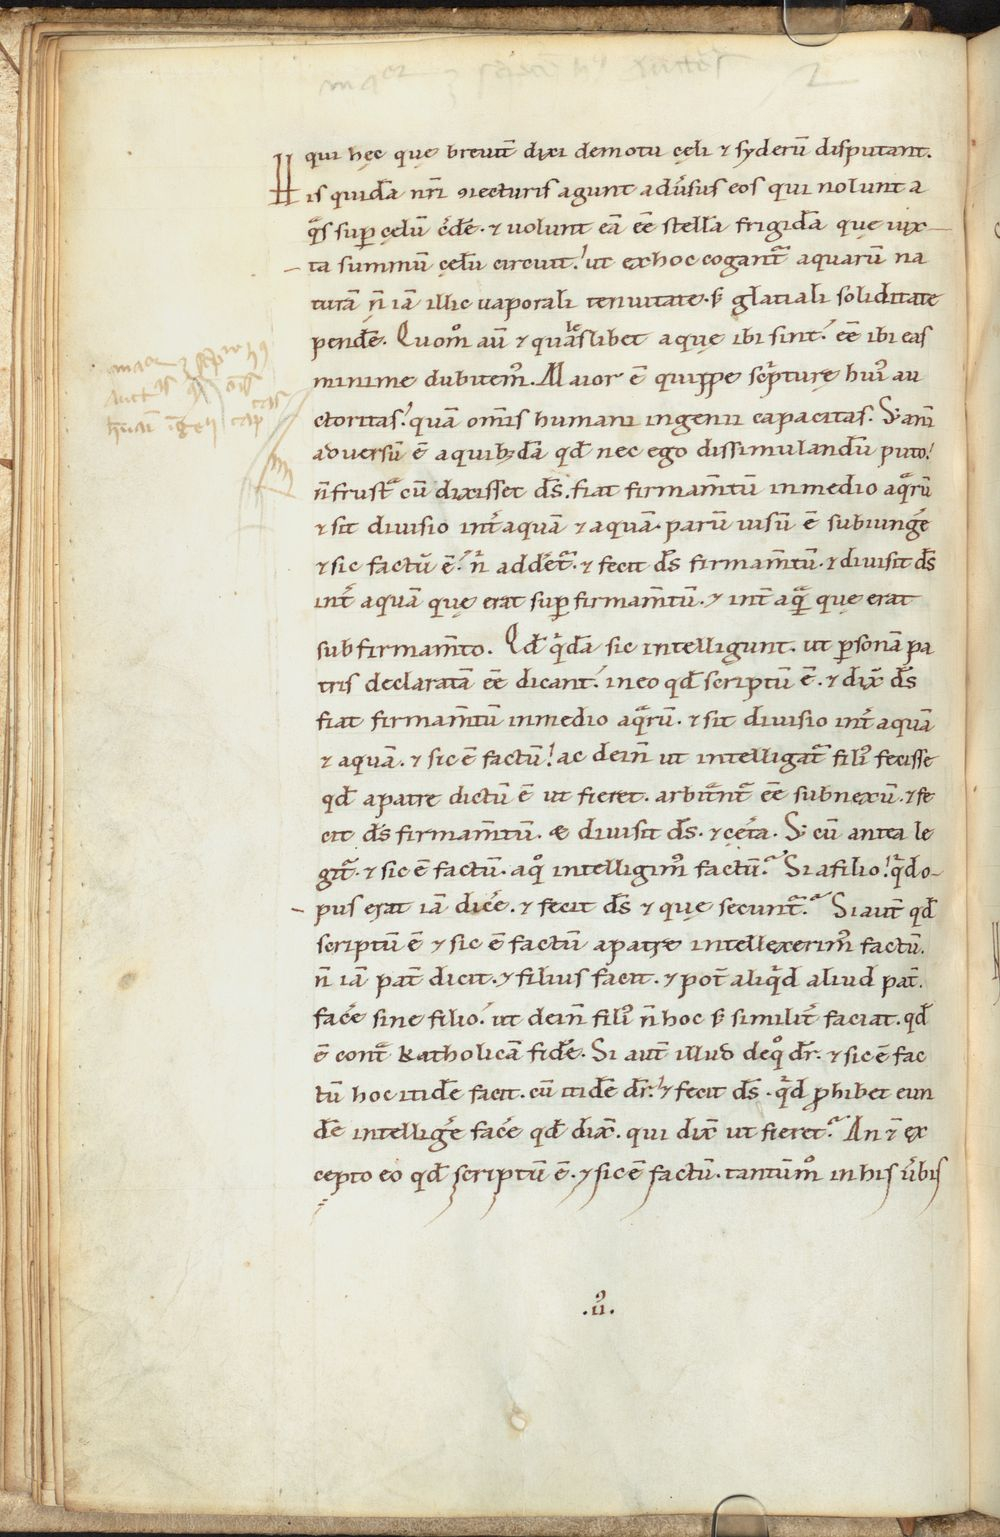 qui hęc quę breuit̄ dixi demotu cęli ⁊ syderū disputant.
His quidā nr̄i ꝯiecturis agunt aduͥsus eos qui nolunt a
qͣs suꝑ cęlū eͥdē. ⁊ uolunt eā eē stellā frigidā quę iux
ta summū cęlū circuit! ut exhoc cogantͣ aquarū na
turā n̄ iā illic uaporali tenuitate. s; glatiali soliditate
pendē. Quom̊ aū ⁊ qualeslibet aquę ibi sint! eē ibi eas
minime dubitem᾽. Maior ē quippe scͥpturę hui᾽ au
ctoritas! quā omīs humani ingenii capacitas. S; ani
aduersū ē aquibꝫdā qđ nec ego dissimulandū puto!
n̄ frustͣ cū dixisset ds̄. fiat firmam̄tū inmedio aqͣrū
⁊ sit diuisio int̄ aquā ⁊ aquā. parū uisū ē subiungē
⁊ sic factū ē! nͥ addētͣ. ⁊ fecit ds̄ firmam̄tū. ⁊ diuisit ds̄
int̄ aquā quę erat suꝑ firmam̄tū. ⁊ int̄ aqͣ quę erat
subfirmam̄to. Qđ qͥdā sic intelligunt. ut ꝑsonā pa
tris declaratā eē dicant! ineo qđ scriptū ē. ⁊ dix̄ ds̄
fiat firmam̄tū inmedio aqͣrū. ⁊ sit diuisio int̄ aquā
⁊ aquā. ⁊ sic ē factū! ac dein̄ ut intelligatͣ fili᾽ fecisse
qđ apatre dictū ē ut fieret. arbitn̄tͣ eē subnexū. ⁊ fe
cit ds̄ firmam̄tū. & diuisit ds̄. ⁊ cęt̄a. S; cū antea le
gitͣ. ⁊ sic ē factū. aq̊ intelligim᾽ factū? Si afilio! qͥd o
pus erat iā dicē. ⁊ fecit ds̄ ⁊ quę secuntͣ? Si aut̄ qđ
scriptū ē ⁊ sic ē factū apatre intellexerim᾽ factū.
n̄ iā pat̄ dicit. ⁊ filius facit. ⁊ pot̄ aliqͥd aliud pat̄.
facē sine filio! ut dein̄ fili᾽ n̄ hoc s; similit̄ faciat. qđ
ē contͣ katholicā fidē. Si aut̄ illud deq̊ dr̄. ⁊ sic ē fac
tū hoc itidē facit. cū itidē dr̄! ⁊ fecit ds̄. qͥd ꝓhibet eun
dē intelligē facē qđ dix̄. qui dix̄ ut fieret? An ⁊ ex
cepto eo qđ scriptū ē. ⁊ sic ē factū. tantūm̊ in his uͥbis
.ii᾽.